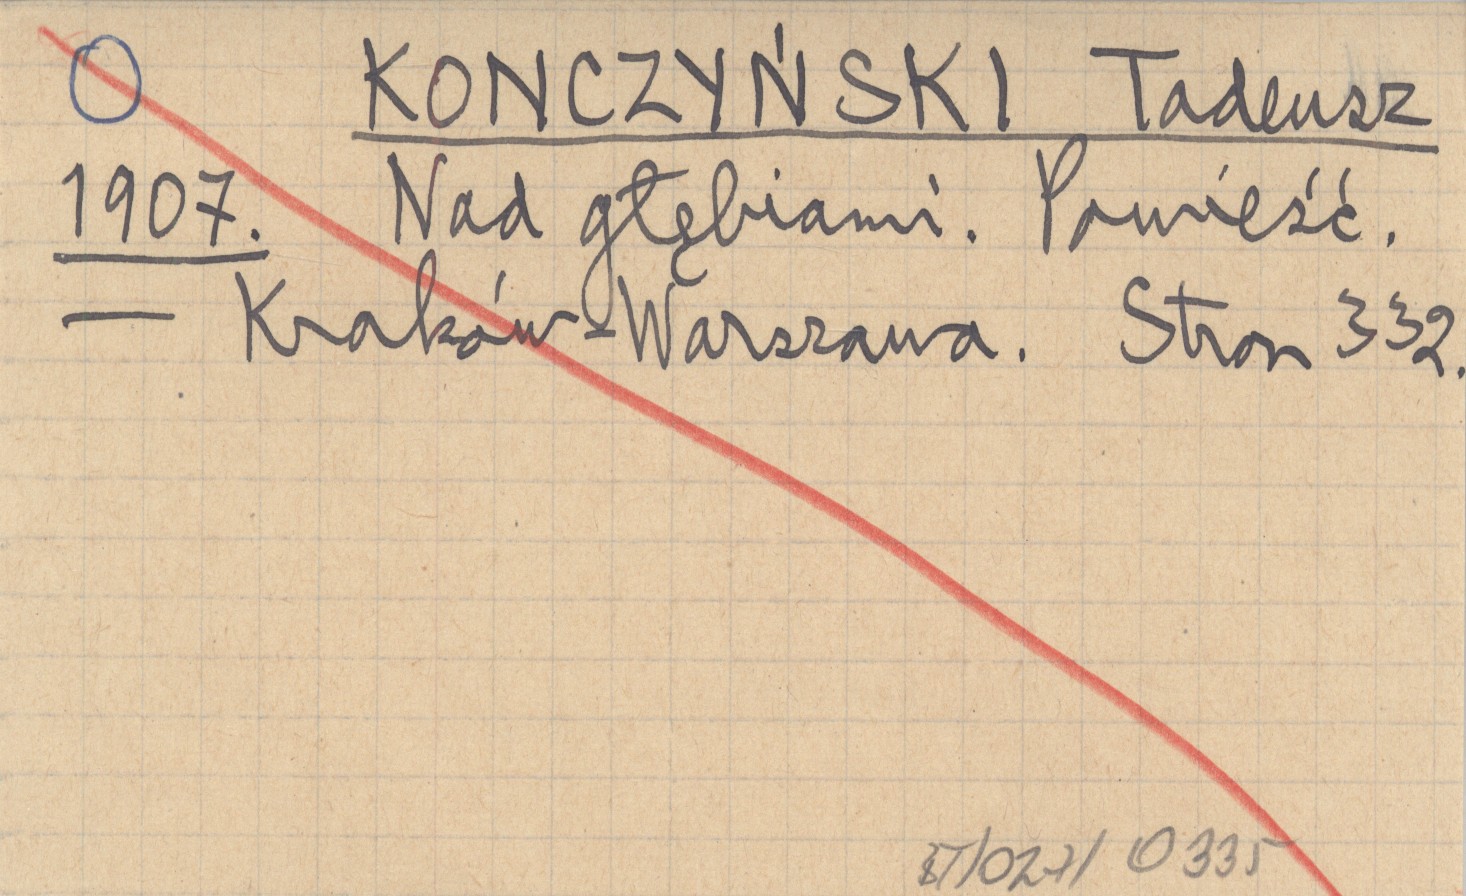 O KONCZYŃSKI Tadeusz
1907. Nad głębiami. Powieść.
— Kraków-Warszawa. Stron 332.
/027/ O 335